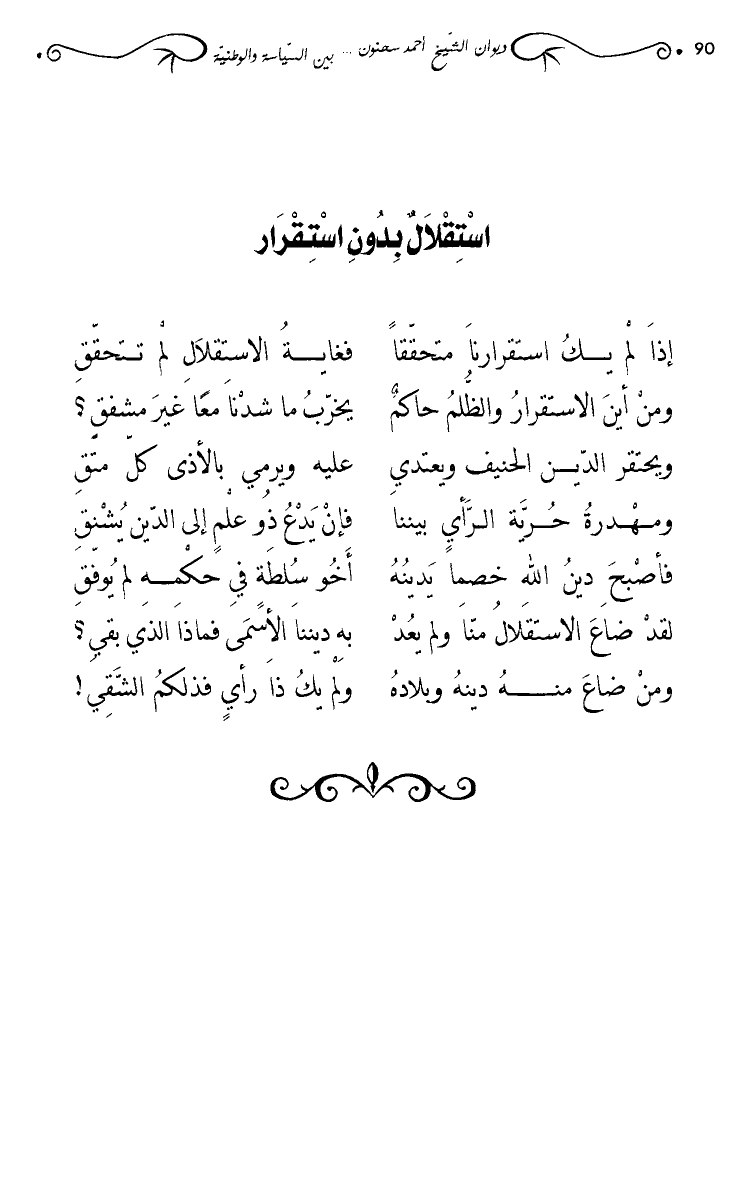 90 ديوان الشّيخ أحمد سحنون ... بين السّياسة والوطنيّة
اسْتِقْلَالٌ بِدُونِ اسْتِقْرَار
إذا لمْ يـــكُ استقرارنا متحقّقاً فغايـــةُ الاستقلالِ لمْ تـتحقّقِ
ومنْ أينَ الاستقرارُ والظّلمُ حاكمٌ يخرّبُ ما شدْنا معًا غيرَ مشفقٍ؟
ويحتقر الدّيـــن الحنيف ويعتدي عليه ويرمي بالأذى كلّ متّقِ
ومـهْـدرةُ حُـريّة الـرّأي بيننا فإنْ يَدْعُ ذُو علْمٍ إلى الدّينِ يُشْنقِ
فأصْبحَ دينُ اللهِ خصماً يَدينُهُ أَخُو سُلطَةٍ في حكْمـــه لم يُوفّقِ
لقدْ ضاعَ الاستقلالُ منّا ولم يعُدْ به ديننا الأسْمَى فماذا الذي بقي؟
ومنْ ضاعَ منـــــهُ دينهُ وبلادهُ ولمْ يكُ ذا رأيٍ فذلكمُ الشَّقِي!